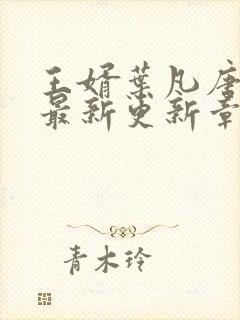 王婿叶凡唐
最新更新章
青木玲